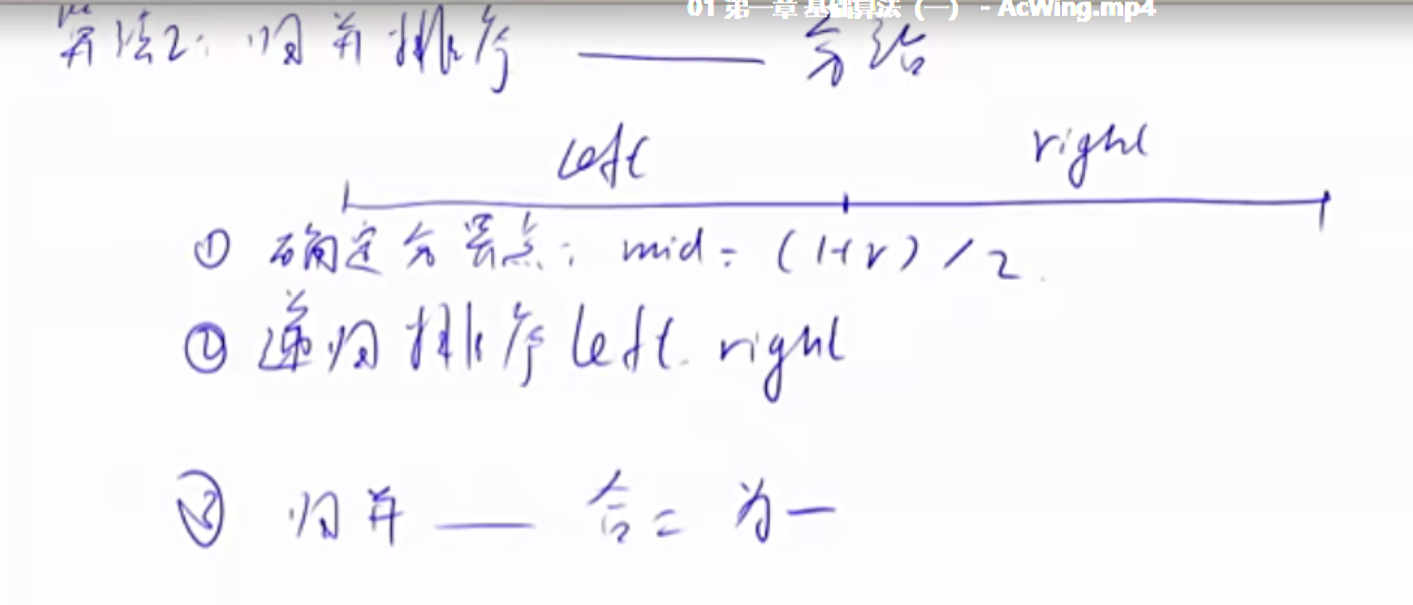 01 第一章 基础算法（一） - AcWing.mp4
算法2: 归并排序 —— 分治
left right
① 确定分界点: mid = (l+r) / 2.
② 递归排序 left. right
③ 归并 —— 合二为一